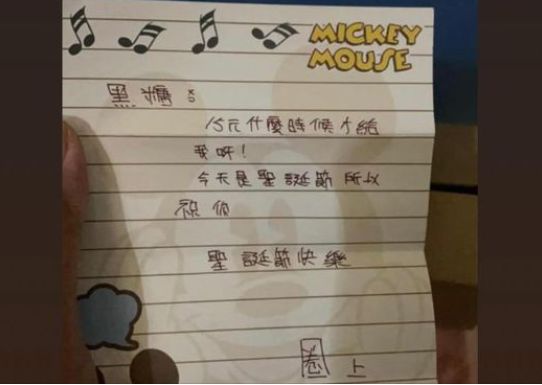 MICKEY
MOUSE
黑糖:
15元什麼時候才給
我呀!
今天是聖誕節所以
祝你
聖誕節快樂
圈 上